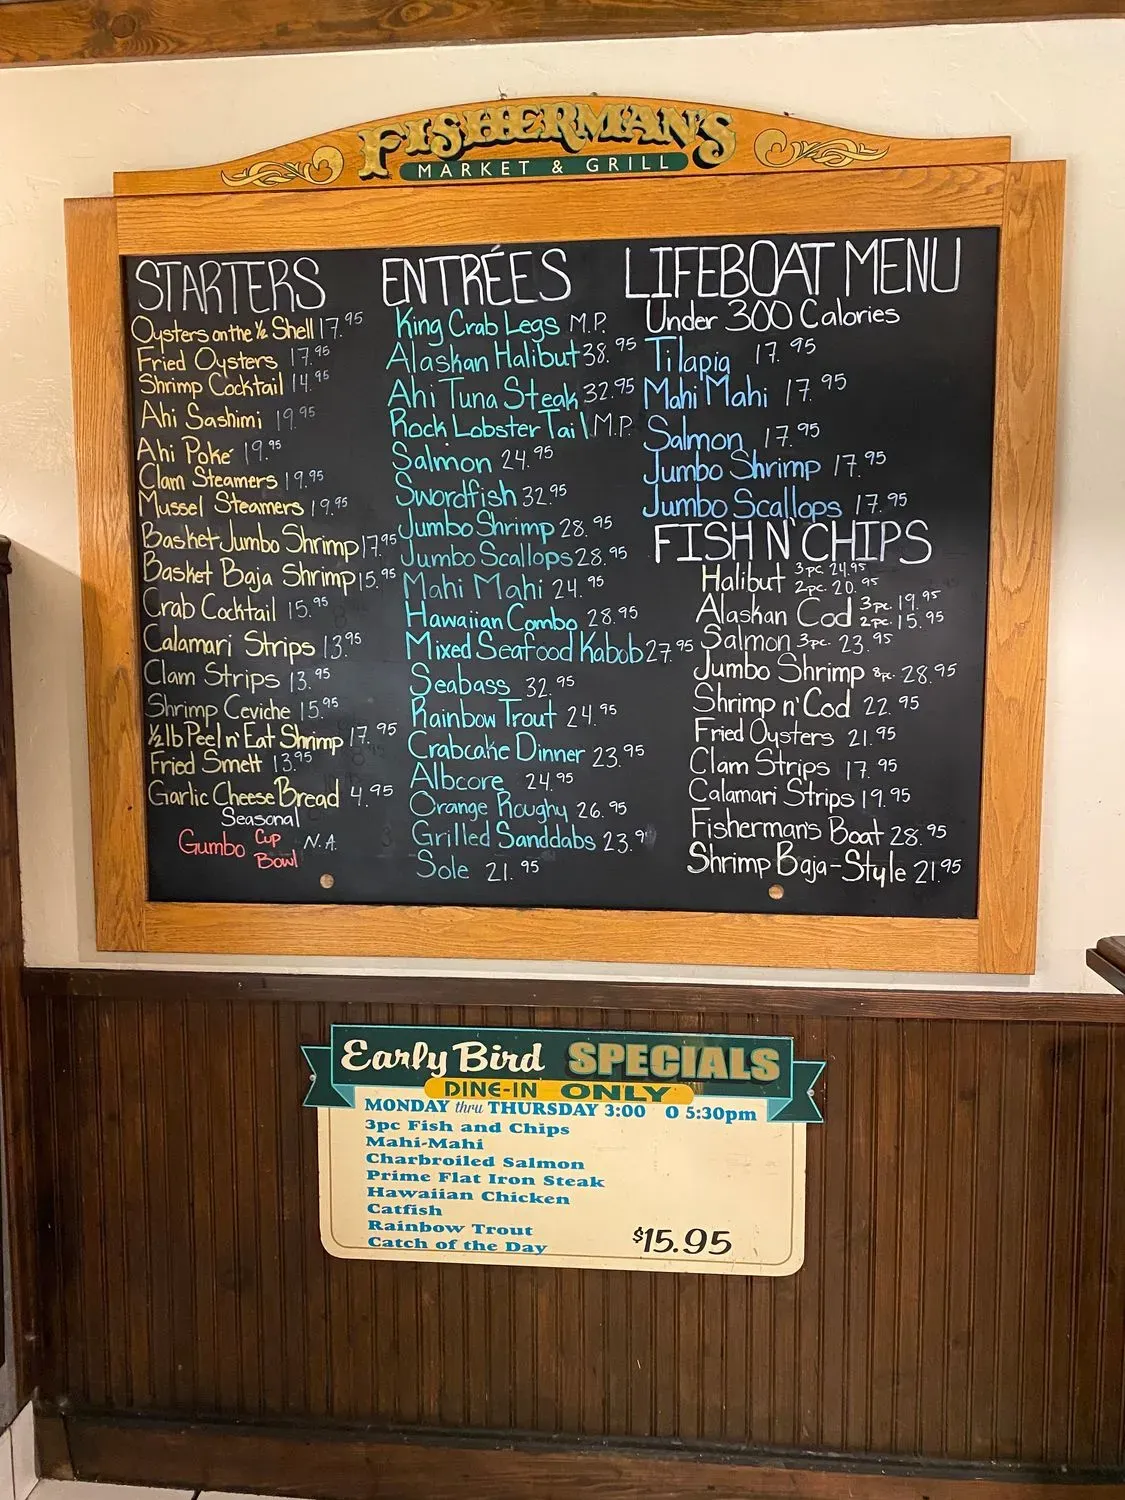 FISHERMAN'S
MARKET & GRILL
STARTERS
Oysters on the ½ Shell 17.95
Fried Oysters 17.95
Shrimp Cocktail 14.95
Ahi Sashimi 19.95
Ahi Poke 19.95
Clam Steamers 19.95
Mussel Steamers 19.95
Basket Jumbo Shrimp 17.95
Basket Baja Shrimp 15.95
Crab Cocktail 15.95
Calamari Strips 13.95
Clam Strips 13.95
Shrimp Ceviche 15.95
½lb Peel n' Eat Shrimp 17.95
Fried Smelt 13.95
Garlic Cheese Bread 4.95
Seasonal
Gumbo Cup N.A.
Bowl
ENTRÉES
King Crab Legs M.P.
Alaskan Halibut 38.95
Ahi Tuna Steak 32.95
Rock Lobster Tail M.P.
Salmon 24.95
Swordfish 32.95
Jumbo Shrimp 28.95
Jumbo Scallops 28.95
Mahi Mahi 24.95
Hawaiian Combo 28.95
Mixed Seafood Kabob 27.95
Seabass 32.95
Rainbow Trout 24.95
Crabcake Dinner 23.95
Albcore 24.95
Orange Roughy 26.95
Grilled Sanddabs 23.9
Sole 21.95
LIFEBOAT MENU
Under 300 Calories
Tilapia 17.95
Mahi Mahi 17.95
Salmon 17.95
Jumbo Shrimp 17.95
Jumbo Scallops 17.95
FISH N' CHIPS
Halibut 3pc. 24.95
2pc. 20.95
Alaskan Cod 3pc. 19.95
2pc. 15.95
Salmon 3pc. 23.95
Jumbo Shrimp 8pc. 28.95
Shrimp n' Cod 22.95
Fried Oysters 21.95
Clam Strips 17.95
Calamari Strips 19.95
Fisherman's Boat 28.95
Shrimp Baja-Style 21.95
Early Bird SPECIALS
DINE-IN ONLY
MONDAY thru THURSDAY 3:00 O 5:30pm
3pc Fish and Chips
Mahi-Mahi
Charbroiled Salmon
Prime Flat Iron Steak
Hawaiian Chicken
Catfish
Rainbow Trout
Catch of the Day
$15.95